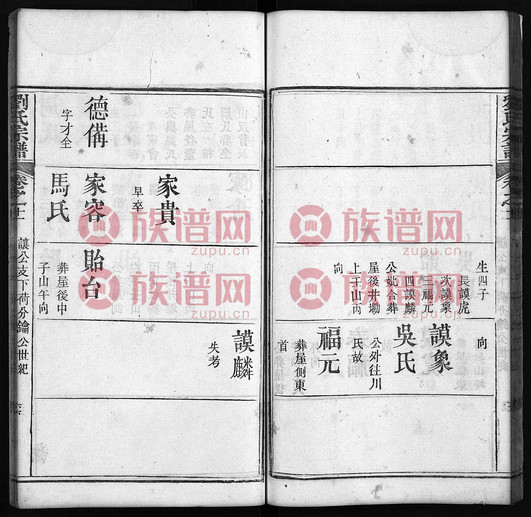 向
生四子
長謨虎
次謨象
三福元
四謨麟
公妣合葬
屋後井塝
上壬山丙
向
謨象
吳氏
公外往川
氏故
福元
葬屋側東
首
謨麟
失考
家貴
早卒
德備
字才全
家容
馬氏
貽台
葬屋後中
子山午向
劉氏宗譜
族谱网
zupu.cn
族谱网
zupu.cn
族谱网
zupu.cn
族谱网
zupu.cn